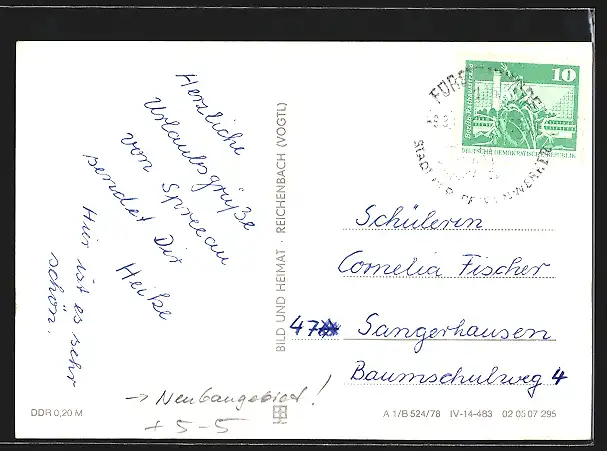 Herzliche
Urlaubsgrüße
von Spreeau
sendet Dir
Heike
Hier ist es sehr
schön.
BILD UND HEIMAT · REICHENBACH (VOGTL)
10
DEUTSCHE DEMOKRATISCHE REPUBLIK
Schülerin
Cornelia Fischer
47 Sangerhausen
Baumschulweg 4
→ Neubaugebiet!
+ 5-5
DDR 0,20 M
A 1/B 524/78 IV-14-483 02 05 07 295